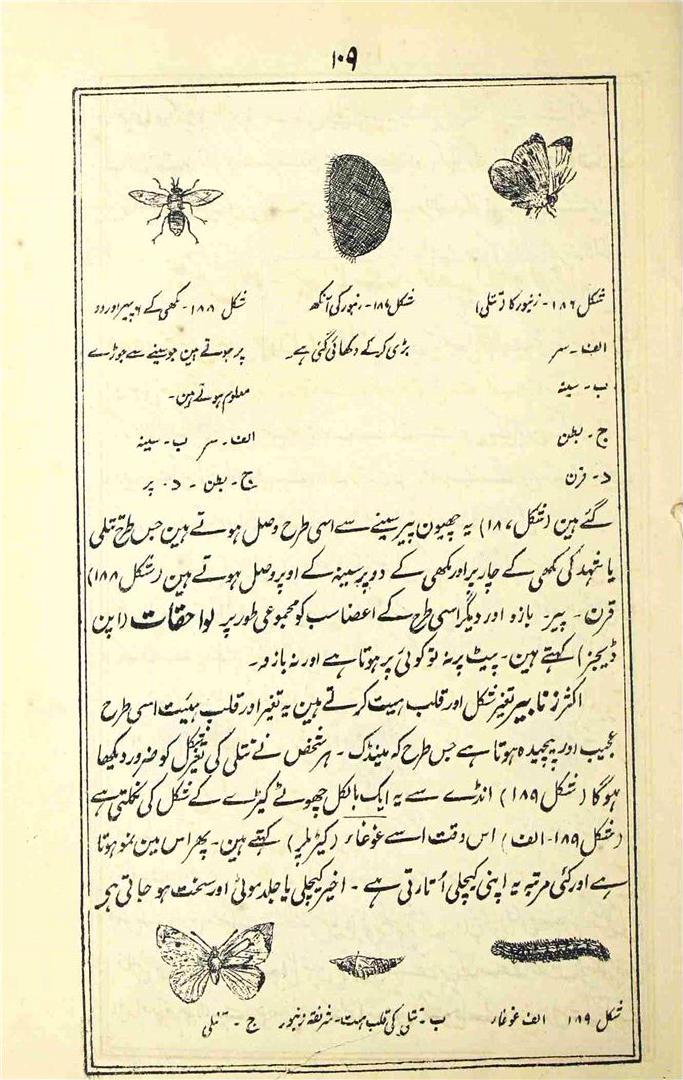 ۱۰۹
شکل ۱۸۶۔ زنبور کا (تتلی)
الف۔ سر
ب۔ سینہ
ج۔ بطن
د۔ قرن
شکل ۱۸۷۔ زنبور کی آنکھ
بڑی کرکے دکھائی گئی ہے۔
شکل ۱۸۸۔ مکھی کے ۶ پیر اور دو
پر ہوتے ہین جو سینے سے جوڑے
معلوم ہوتے ہین۔
الف۔ سر ب۔ سینہ
ج۔ بطن۔ د۔ پر
گئے ہین (شکل ۱۸۷) یہ چھیون پیر سینے سے اسی طرح وصل ہوتے ہین جس طرح تتلی
یا شہد کی مکھی کے چار پر اور مکھی کے دو پر سینہ کے اوپر وصل ہوتے ہین (شکل ۱۸۸)
قرن۔ پیر۔ بازو اور دیگر اسی طرح کے اعضا سب کو مجموعی طور پر لواحقات (اپن
ڈیجز) کہتے ہین۔ پیٹ پر نہ تو کوئی پر ہوتا ہے اور نہ بازو۔
اکثر زنابیر تغیر شکل اور قلب ہیت کرتے ہین یہ تغیر اور قلب ہیئت اسی طرح
عجیب اور پیچیدہ ہوتا ہے جس طرح کہ مینڈک۔ ہر شخص نے تتلی کی تغیر شکل کو ضرور دیکھا
ہوگا (شکل ۱۸۹) انڈے سے یہ ایک بالکل چھوٹے کیڑے کے شکل کی نکلتی ہے
(شکل ۱۸۹۔ الف) اس وقت اسے غوغاء (کیڑ پلر) کہتے ہین۔ پھر اس مین نمو ہوتا
ہے اور کئی مرتبہ یہ اپنی کیچلی اُتارتی ہے۔ اخیر کیچلی یا جلد موٹی اور سخت ہو جاتی ہر
شکل ۱۸۹ الف غوغاء ب۔ تتلی کی قلب ہیت۔ شرنقہ زنبور ج۔ تتلی